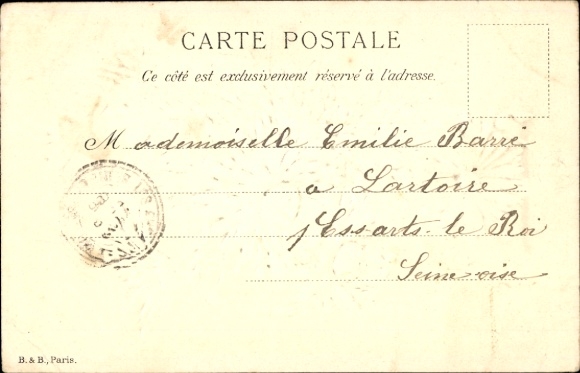 CARTE POSTALE
Ce côté est exclusivement réservé à l'adresse.
Mademoiselle Emilie Barré
a Lartoire
p Essarts-le Roi
Seine oise
B. & B., Paris.